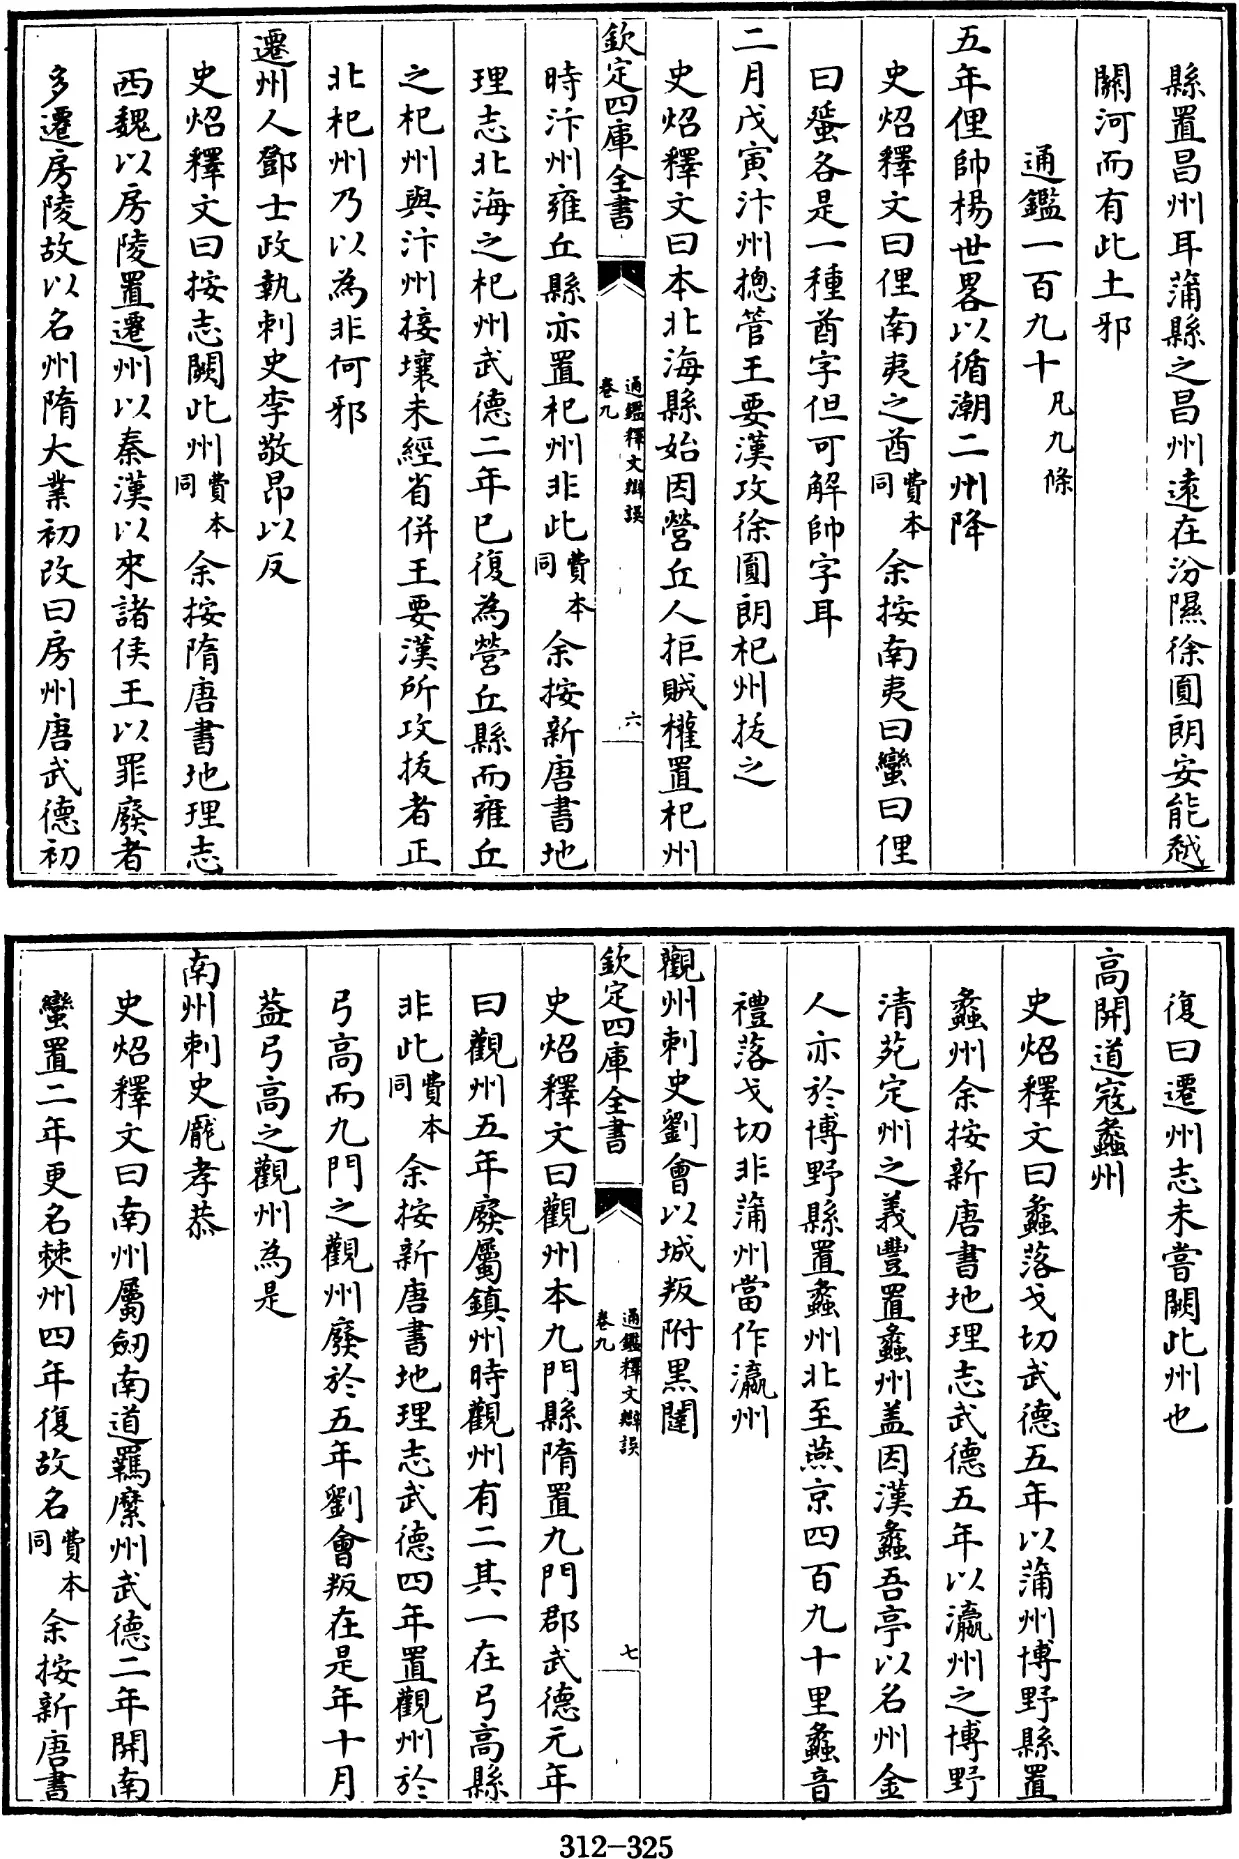 縣置昌州耳蒲縣之昌州逺在汾隰徐圓朗安能越
關河而有此土邪
通鑑一百九十凡九條
五年俚帥楊世畧以循潮二州降
史炤釋文曰俚南夷之酋費本同余按南夷曰蠻曰俚
曰蜑各是一種酋字但可解帥字耳
二月戊寅汴州摠管王要漢攻徐圓朗杞州拔之
史炤釋文曰本北海縣始因營丘人拒賊權置杞州
欽定四庫全書
通鑑釋文辯誤
卷九
六
時汴州雍丘縣亦置杞州非此費本同余按新唐書地
理志北海之杞州武德二年已復為營丘縣而雍丘
之杞州與汴州接壤未經省併王要漢所攻拔者正
北杞州乃以為非何邪
遷州人鄧士政執刺史李敬昂以反
史炤釋文曰按志闕此州費本同余按隋唐書地理志
西魏以房陵置遷州以秦漢以來諸侯王以罪廢者
多遷房陵故以名州隋大業初改曰房州唐武德初
復曰遷州志未嘗闕此州也
高開道寇蠡州
史炤釋文曰蠡落戈切武德五年以蒲州博野縣置
蠡州余按新唐書地理志武德五年以瀛州之博野
清苑定州之義豐置蠡州盖因漢蠡吾亭以名州金
人亦於博野縣置蠡州北至燕京四百九十里蠡音
禮落戈切非蒲州當作瀛州
觀州刺史劉會以城叛附黒闥
史炤釋文曰觀州本九門縣隋置九門郡武德元年
欽定四庫全書
通鑑釋文辯誤
卷九
七
曰觀州五年廢屬鎮州時觀州有二其一在弓高縣
非此費本同余按新唐書地理志武德四年置觀州於
弓高而九門之觀州廢於五年劉會叛在是年十月
葢弓高之觀州為是
南州刺史龎孝恭
史炤釋文曰南州屬劒南道羈縻州武德二年開南
蠻置二年更名僰州四年復故名費本同余按新唐書
312-325